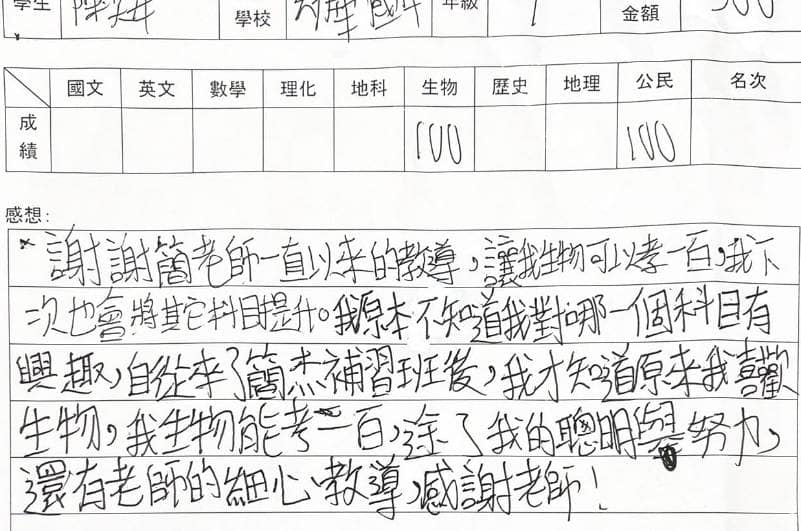 學生 陳 學校 國中 年級 1 金額 500
國文 英文 數學 理化 地科 生物 歷史 地理 公民 名次
成績 100 100
感想:
謝謝簡老師一直以來的教導,讓我生物可以考一百,我下
次也會將其它科目提升。我原本不知道我對哪一個科目有
興趣,自從來了簡杰補習班後,我才知道原來我喜歡
生物,我生物能考一百,除了我的聰明與努力,
還有老師的細心教導,感謝老師!